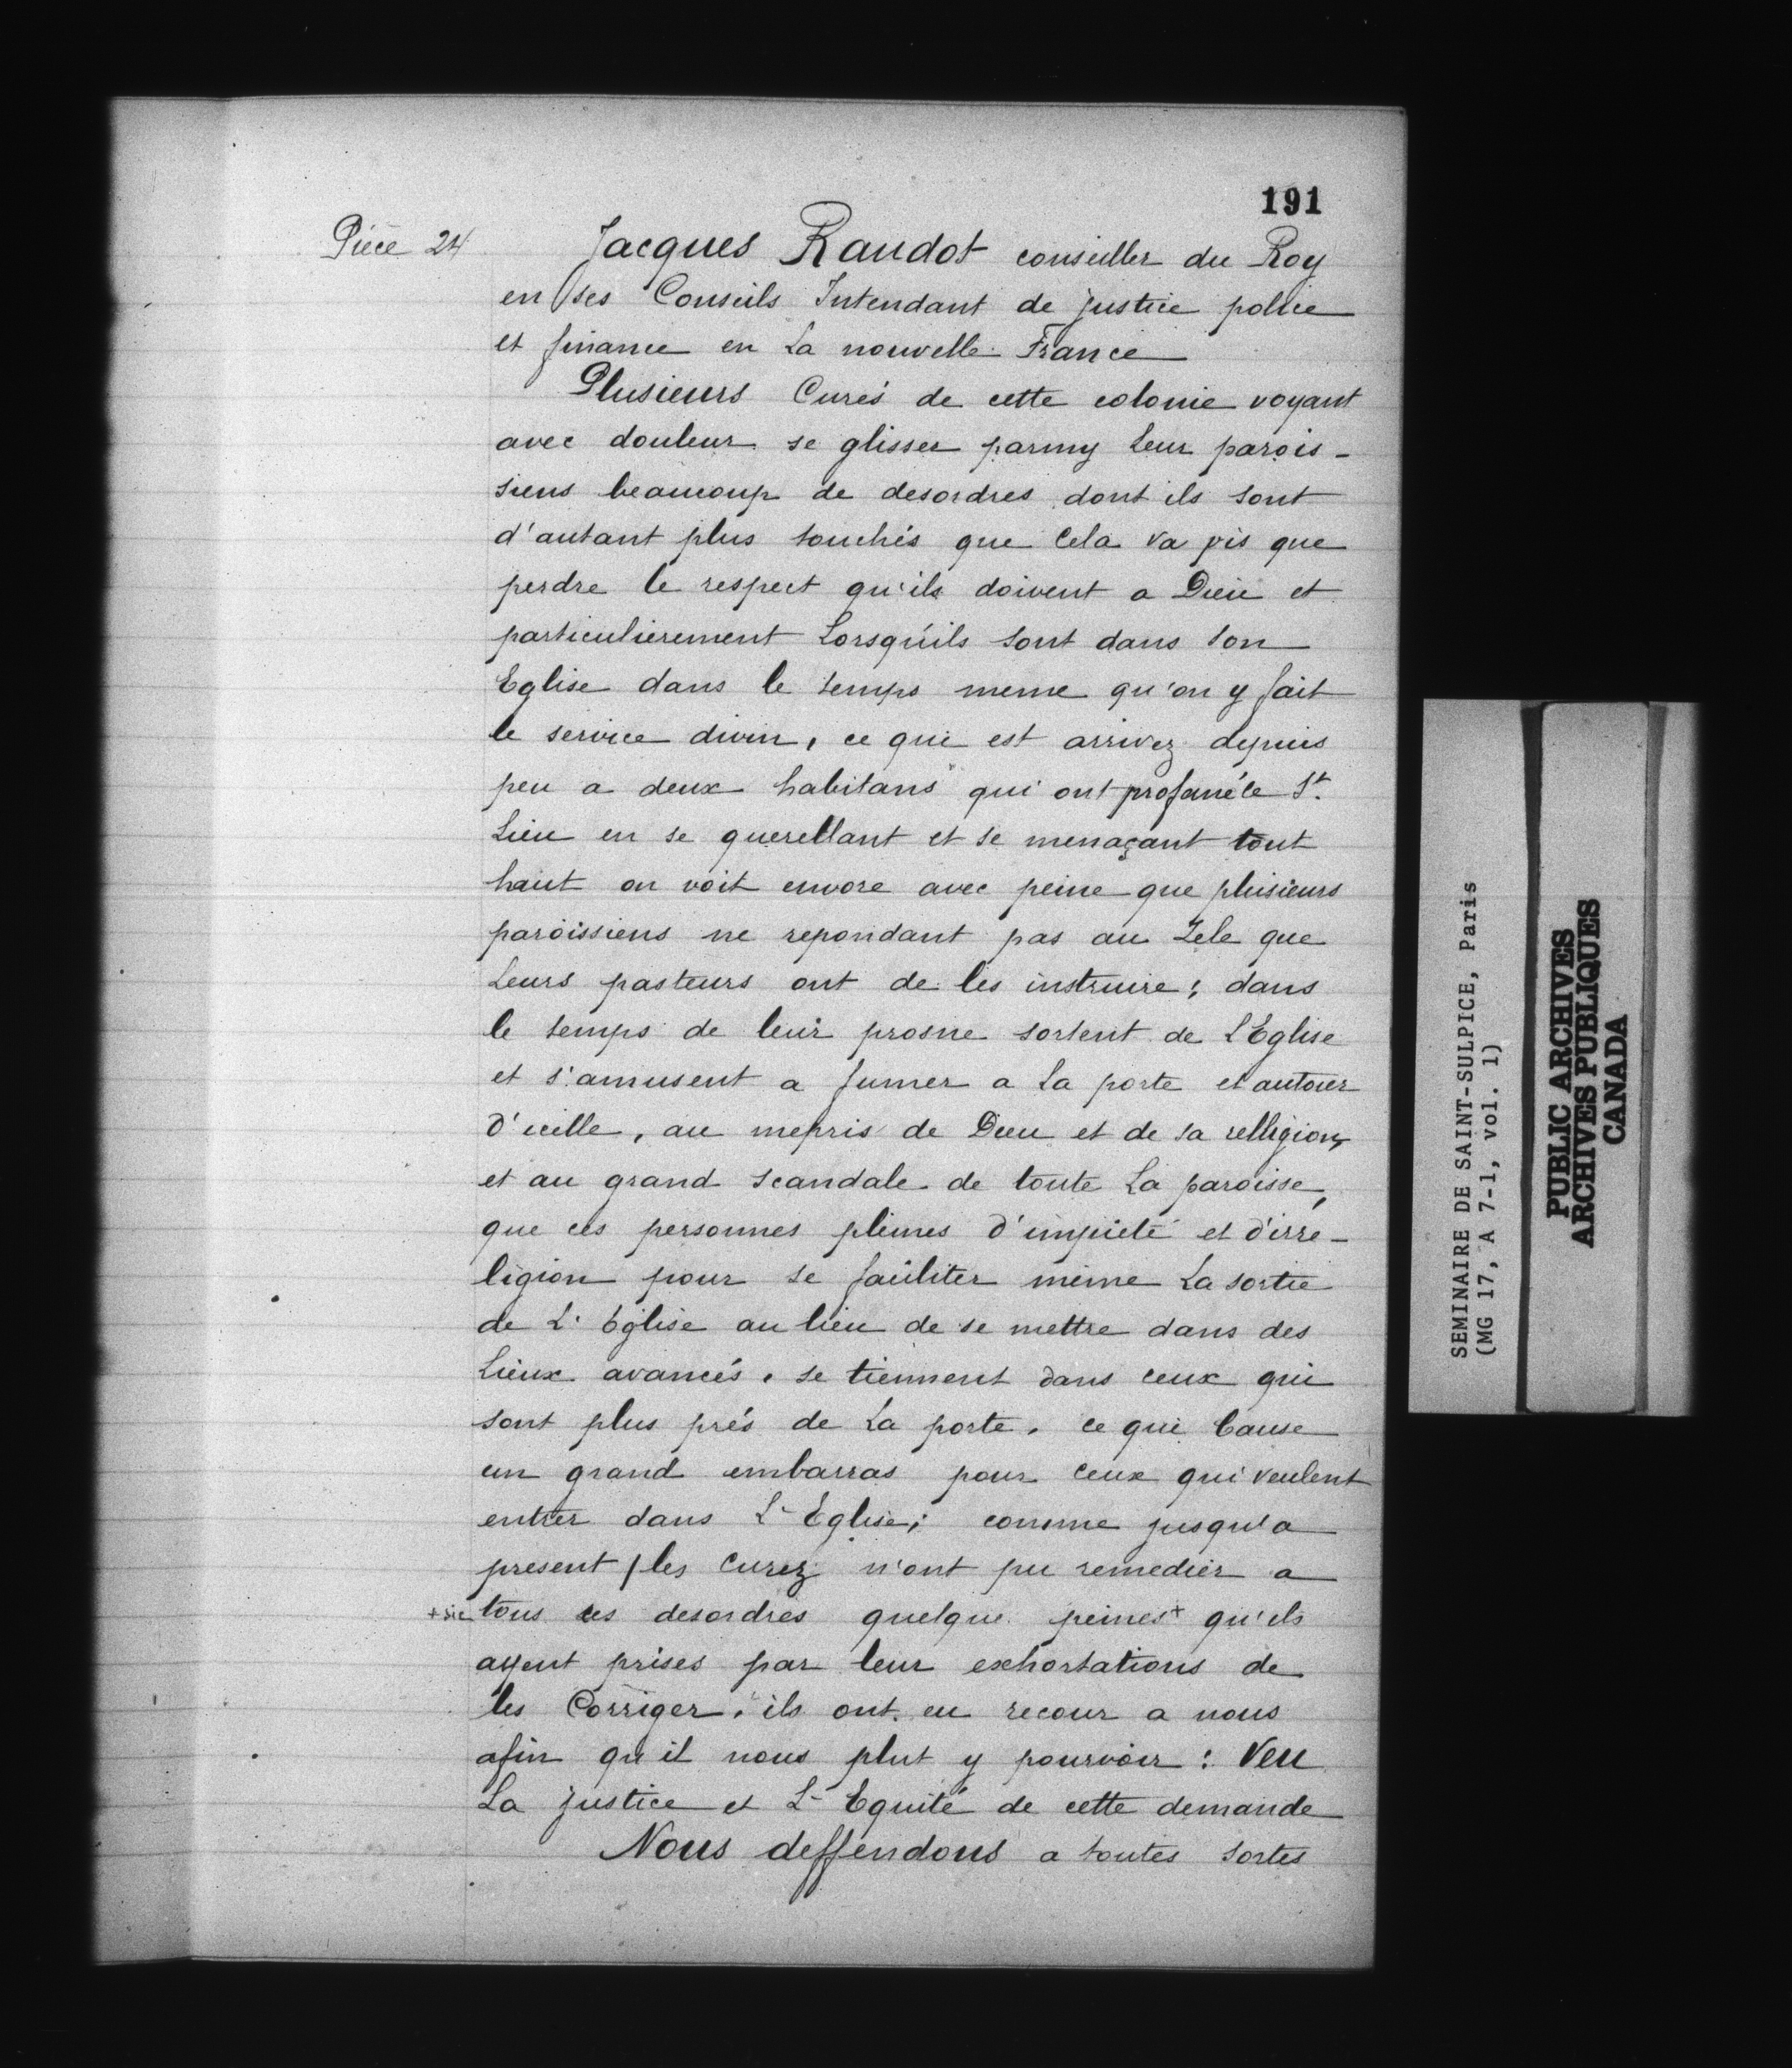 191
Pièce 24
Jacques Raudot conseiller du Roy
en ses Conseils Intendant de justice police
et finance en La nouvelle France
Plusieurs Curés de cette colonie voyant
avec douleur se glisser parmy leur parois-
siens beaucoup de desordres dont ils sont
d'autant plus touchés que Cela va pis que
perdre le respect qu'ils doivent a Dieu et
particulierement Lorsqu'ils sont dans son
Eglise dans le temps meme qu'on y fait
le service divin, ce qui est arrivez depuis
peu a deux habitans qui ont profané le St.
Lieu en se querellant et se menaçant tout
haut on voit encore avec peine que plusieurs
paroissiens ne repondant pas au Zele que
Leurs pasteurs ont de les instruire; dans
le temps de leur prosne sortent de L'Eglise
et s'amusent a fumer a La porte et autour
d'icelle, au mepris de Dieu et de sa relligion,
et au grand scandale de toute La paroisse,
que ces personnes pleines d'impieté et d'irre-
ligion pour se faciliter même La sortie
de L'Eglise au lieu de se mettre dans des
Lieux avancés, se tiennent dans ceux qui
sont plus prés de La porte, ce qui Cause
un grand embarras pour ceux qui veulent
entrer dans L'Eglise; comme jusqu'a
present les Curez n'ont pu remedier a
+sic tous ces desordres quelque peines+ qu'ils
ayent prises par leur exhortations de
les Corriger, ils ont eu recour a nous
afin qu'il nous plut y pourvoir : Veu
La justice et L'Equité de cette demande
Nous deffendons a toutes sortes
SEMINAIRE DE SAINT-SULPICE, Paris
(MG 17, A 7-1, vol. 1)
PUBLIC ARCHIVES
ARCHIVES PUBLIQUES
CANADA